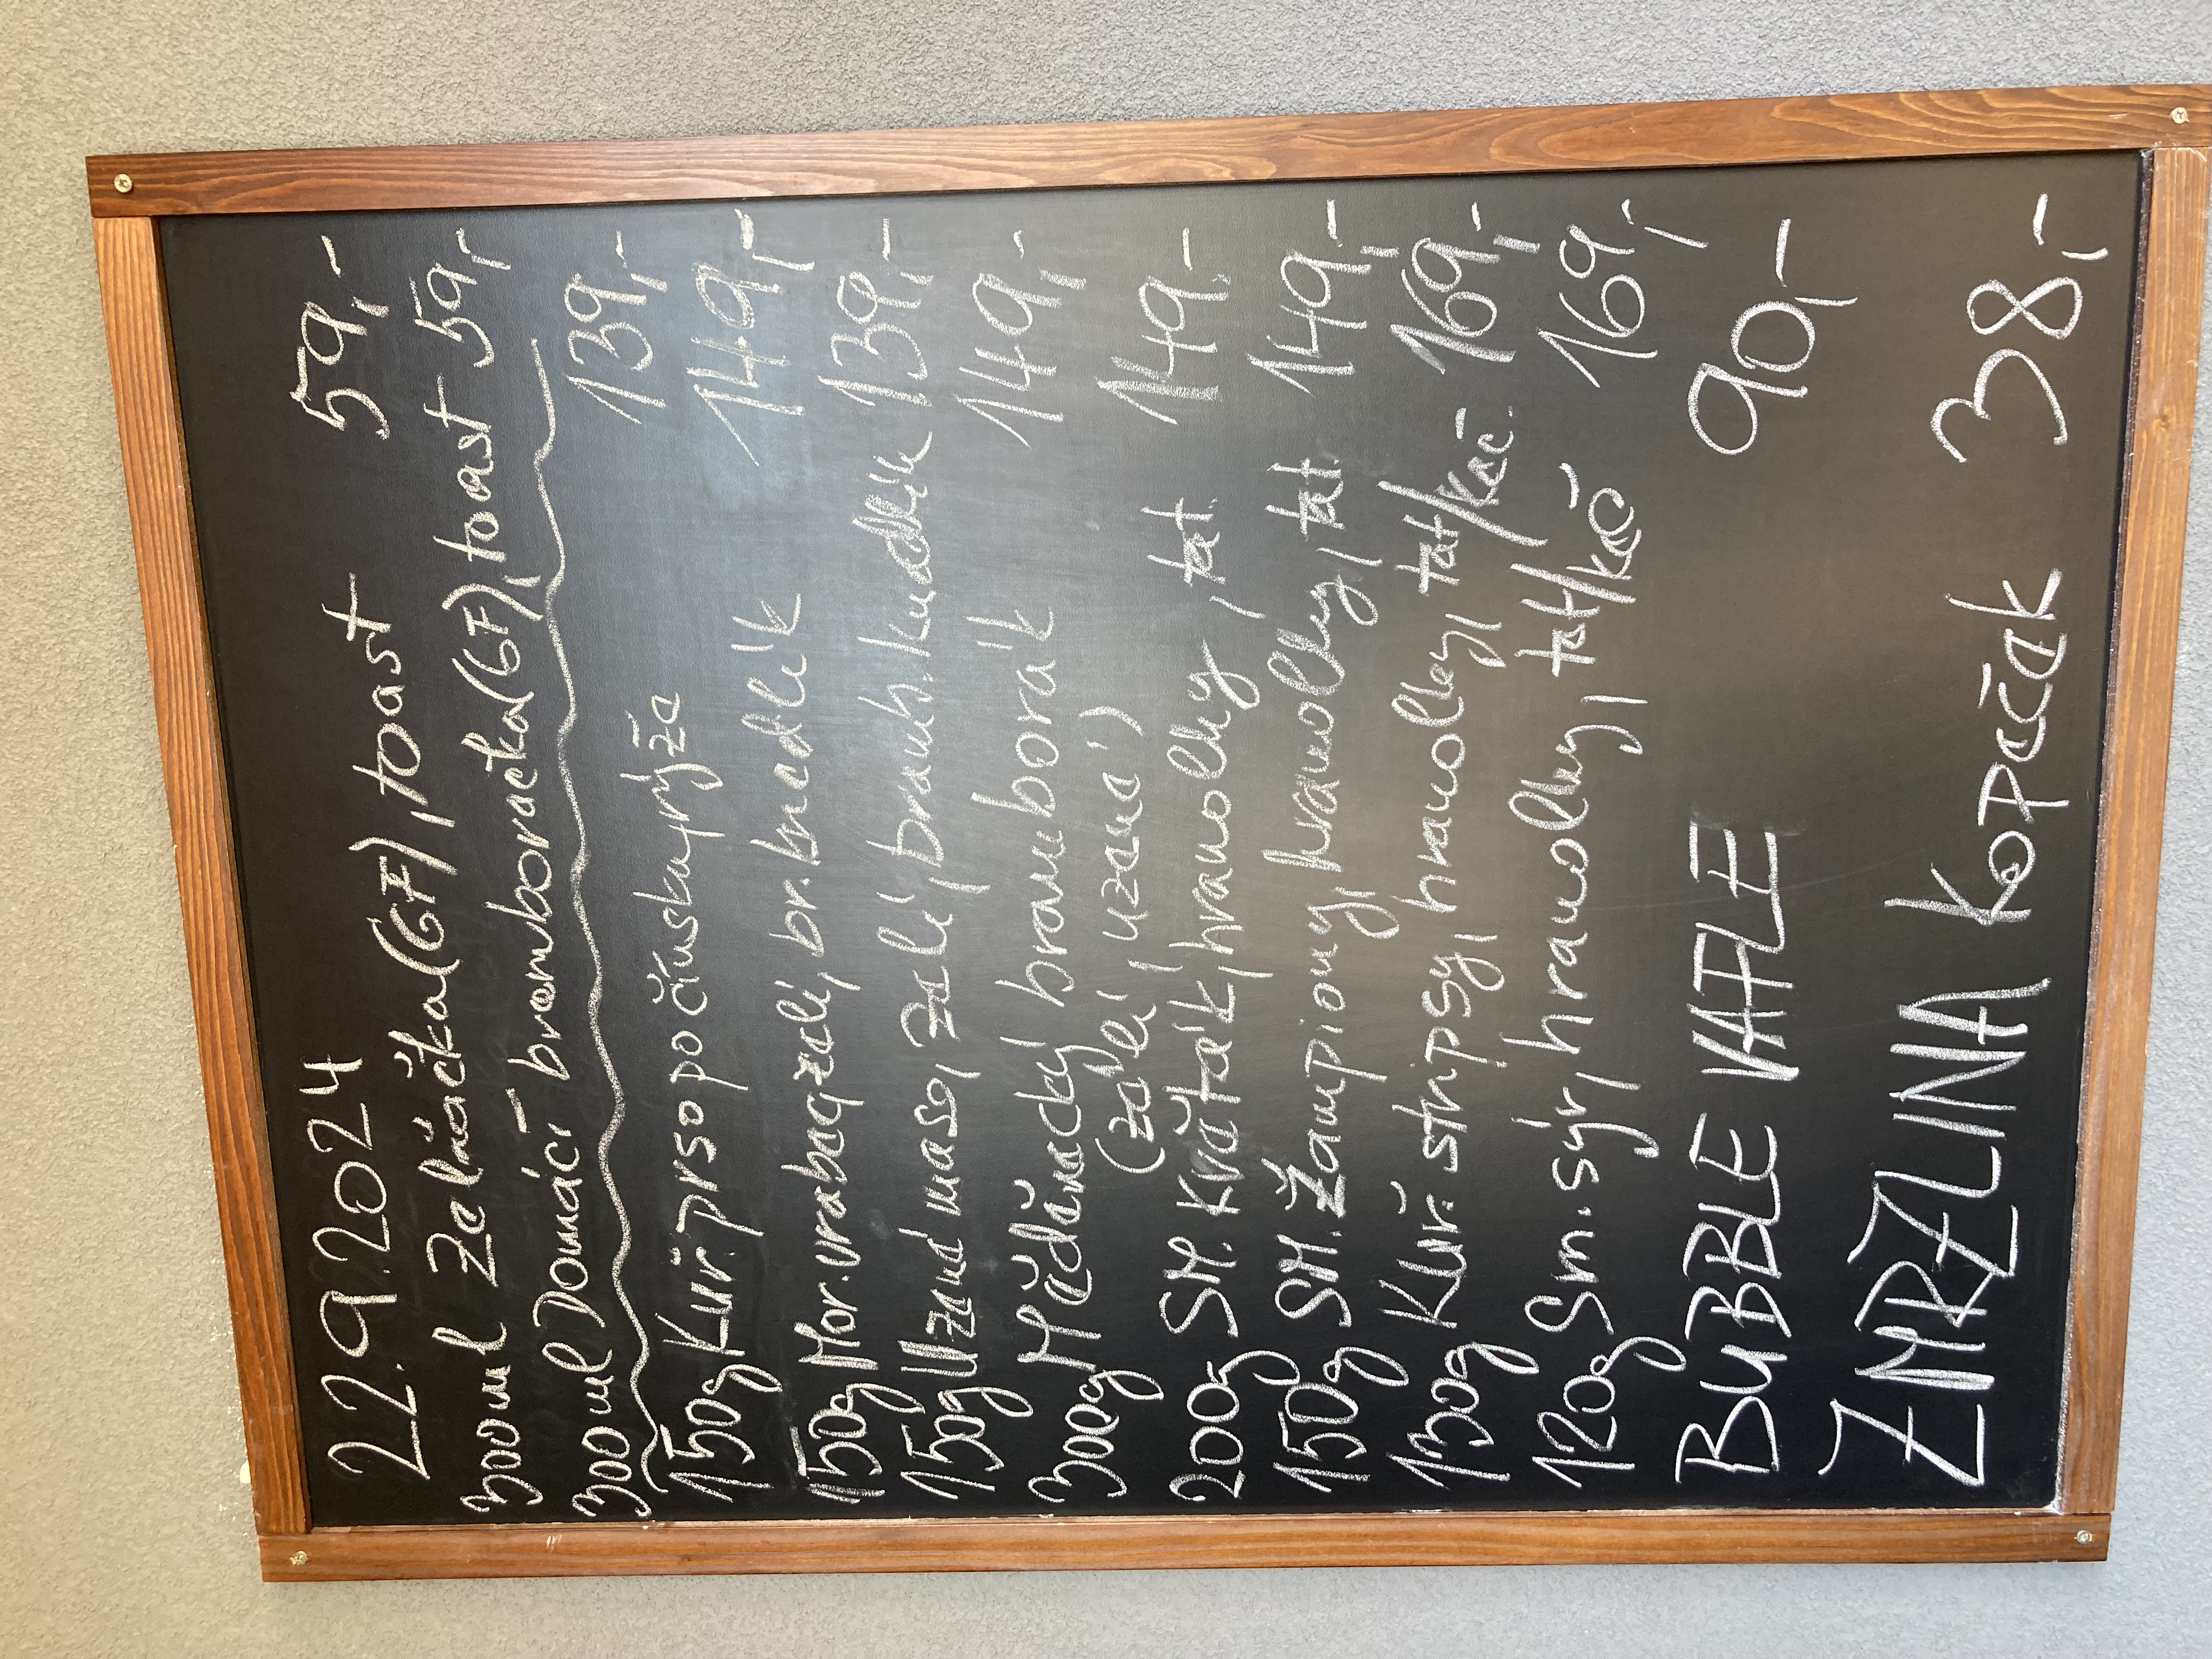 22.9.2024
300ml Zelňačka(GF), toast 59,-
300ml Domácí bramboračka(GF), toast 59,-
150g Kuř. prso po čínsku, rýže 139,-
150g Mor. vrabec, zelí, br. knedlík 149,-
150g Uzené maso, zelí, bramb. knedlík 139,-
300g Měděnacký bramborák 149,-
(zelí, uzená)
200g SM. Květák, hranolky, tat. 149,-
150g SM. Žampiony, hranolky, tat. 149,-
130g Kuř. stripsy, hranolky, tat/keč. 169,-
120g Sm. sýr, hranolky, tat/keč 169,-
BUBBLE VAFLE 90,-
ZMRZLINA Kopeček 38,-